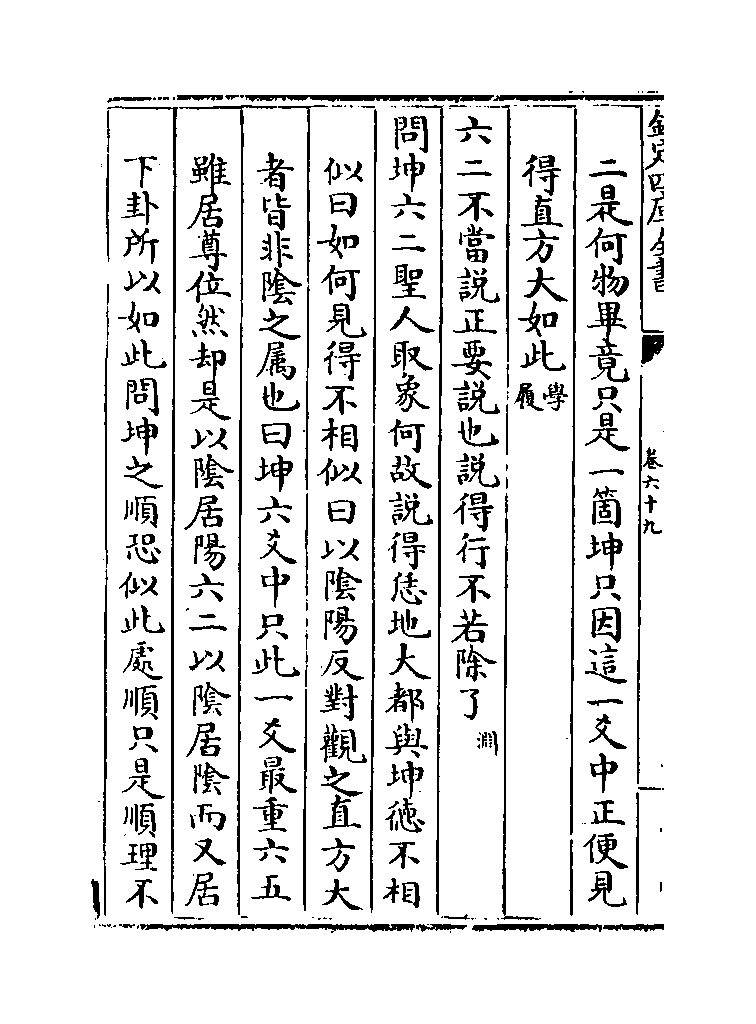 欽定四庫全書
卷六十九
二是何物畢竟只是一箇坤只因這一爻中正便見
得直方大如此學履
六二不當説正要説也説得行不若除了淵
問坤六二聖人取象何故説得恁地大都與坤德不相
似曰如何見得不相似曰以陰陽反對觀之直方大
者皆非陰之属也曰坤六爻中只此一爻最重六五
雖居尊位然却是以陰居陽六二以陰居陰而又居
下卦所以如此問坤之順恐似此處順只是順理不